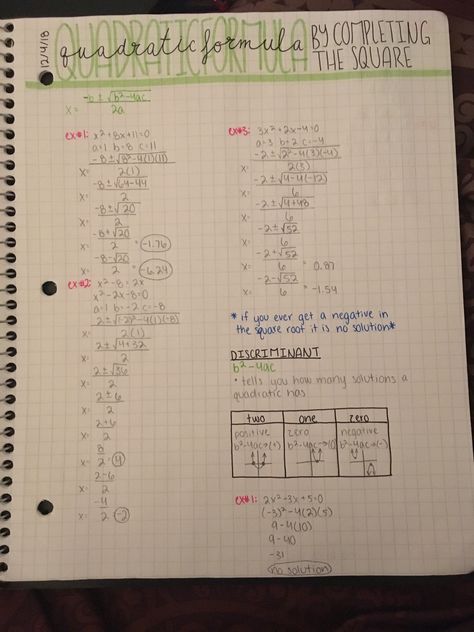 12/4/18
QUADRATIC FORMULA
quadratic formula BY COMPLETING
THE SQUARE
x= -b ± √b²-4ac / 2a
ex#1: x²+8x+11=0
a=1 b=8 c=11
x= -8 ± √8²-4(1)(11) / 2(1)
x= -8 ± √64-44 / 2
x= -8 ± √20 / 2
x= -8+√20 / 2 = -1.76
x= -8-√20 / 2 = -6.24
ex#2: x²-8=2x
x²-2x-8=0
a=1 b=-2 c=-8
x= 2 ± √(-2)²-4(1)(-8) / 2(1)
x= 2 ± √4+32 / 2
x= 2 ± √36 / 2
x= 2 ± 6 / 2
x= 2+6 / 2
x= 8 / 2 = 4
x= 2-6 / 2
x= -4 / 2 = -2
ex#3: 3x²+2x-4=0
a=3 b=2 c=-4
x= -2 ± √2²-4(3)(-4) / 2(3)
x= -2 ± √4-4(-12) / 6
x= -2 ± √4+48 / 6
x= -2 ± √52 / 6
x= -2+√52 / 6 = 0.87
x= -2-√52 / 6 = -1.54
* if you ever get a negative in
the square root it is no solution*
DISCRIMINANT
b²-4ac
• tells you how many solutions a
quadratic has
two one zero
positive zero negative
b²-4ac→(+) b²-4ac→(0) b²-4ac→(-)
ex#1: 2x²-3x+5=0
(-3)²-4(2)(5)
9-4(10)
9-40
-31
no solution